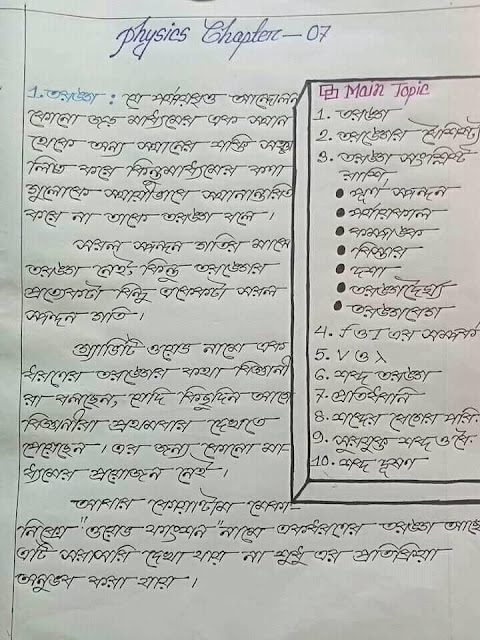 Physics Chapter - 07
1. তরঙ্গ : যে পর্যাবৃত্ত আন্দোলন
কোনো জড় মাধ্যমের এক স্থান
থেকে অন্য স্থানের শক্তি সঞ্চা
লিত করে কিন্তু মাধ্যমের কণা
গুলোকে স্থায়ীভাবে স্থানান্তরিত
করে না তাকে তরঙ্গ বলে ।
সরল স্পন্দন গতির মাঝে
তরঙ্গ নেই, কিন্তু তরঙ্গের
প্রত্যেকটা বিন্দু একেকটা সরল
স্পন্দন গতি ।
গ্র্যাভিটি ওয়েভ নামে এক
ধরণের তরঙ্গের কথা বিজ্ঞানী
রা বলছেন, যেটি কিছুদিন আগে
বিজ্ঞানীরা প্রথমবার দেখতে
পেয়েছেন । এর জন্য কোনো মা-
ধ্যমের প্রয়োজন নেই ।
আবার কোয়ান্টাম মেকা-
নিক্সে "ওয়েভ ফাংশন" নামে একধরণের তরঙ্গ আছে
এটি সরাসরি দেখা যায় না শুধু এর প্রতিক্রিয়া
অনুভব করা যায় ।
Main Topic
1. তরঙ্গ
2. তরঙ্গের বৈশিষ্ট্য
3. তরঙ্গ সংশ্লিষ্ট
রাশি
● পূর্ণ স্পন্দন
● পর্যায়কাল
● কম্পাঙ্ক
● বিস্তার
● দশা
● তরঙ্গদৈর্ঘ্য
● তরঙ্গবেগ
4. f ও T এর সম্পর্ক
5. V ও λ
6. শব্দ তরঙ্গ
7. প্রতিধ্বনি
8. শব্দের বেগের পরি.
9. সুরযুক্ত শব্দ ও বৈ.
10. শব্দ দূষণ